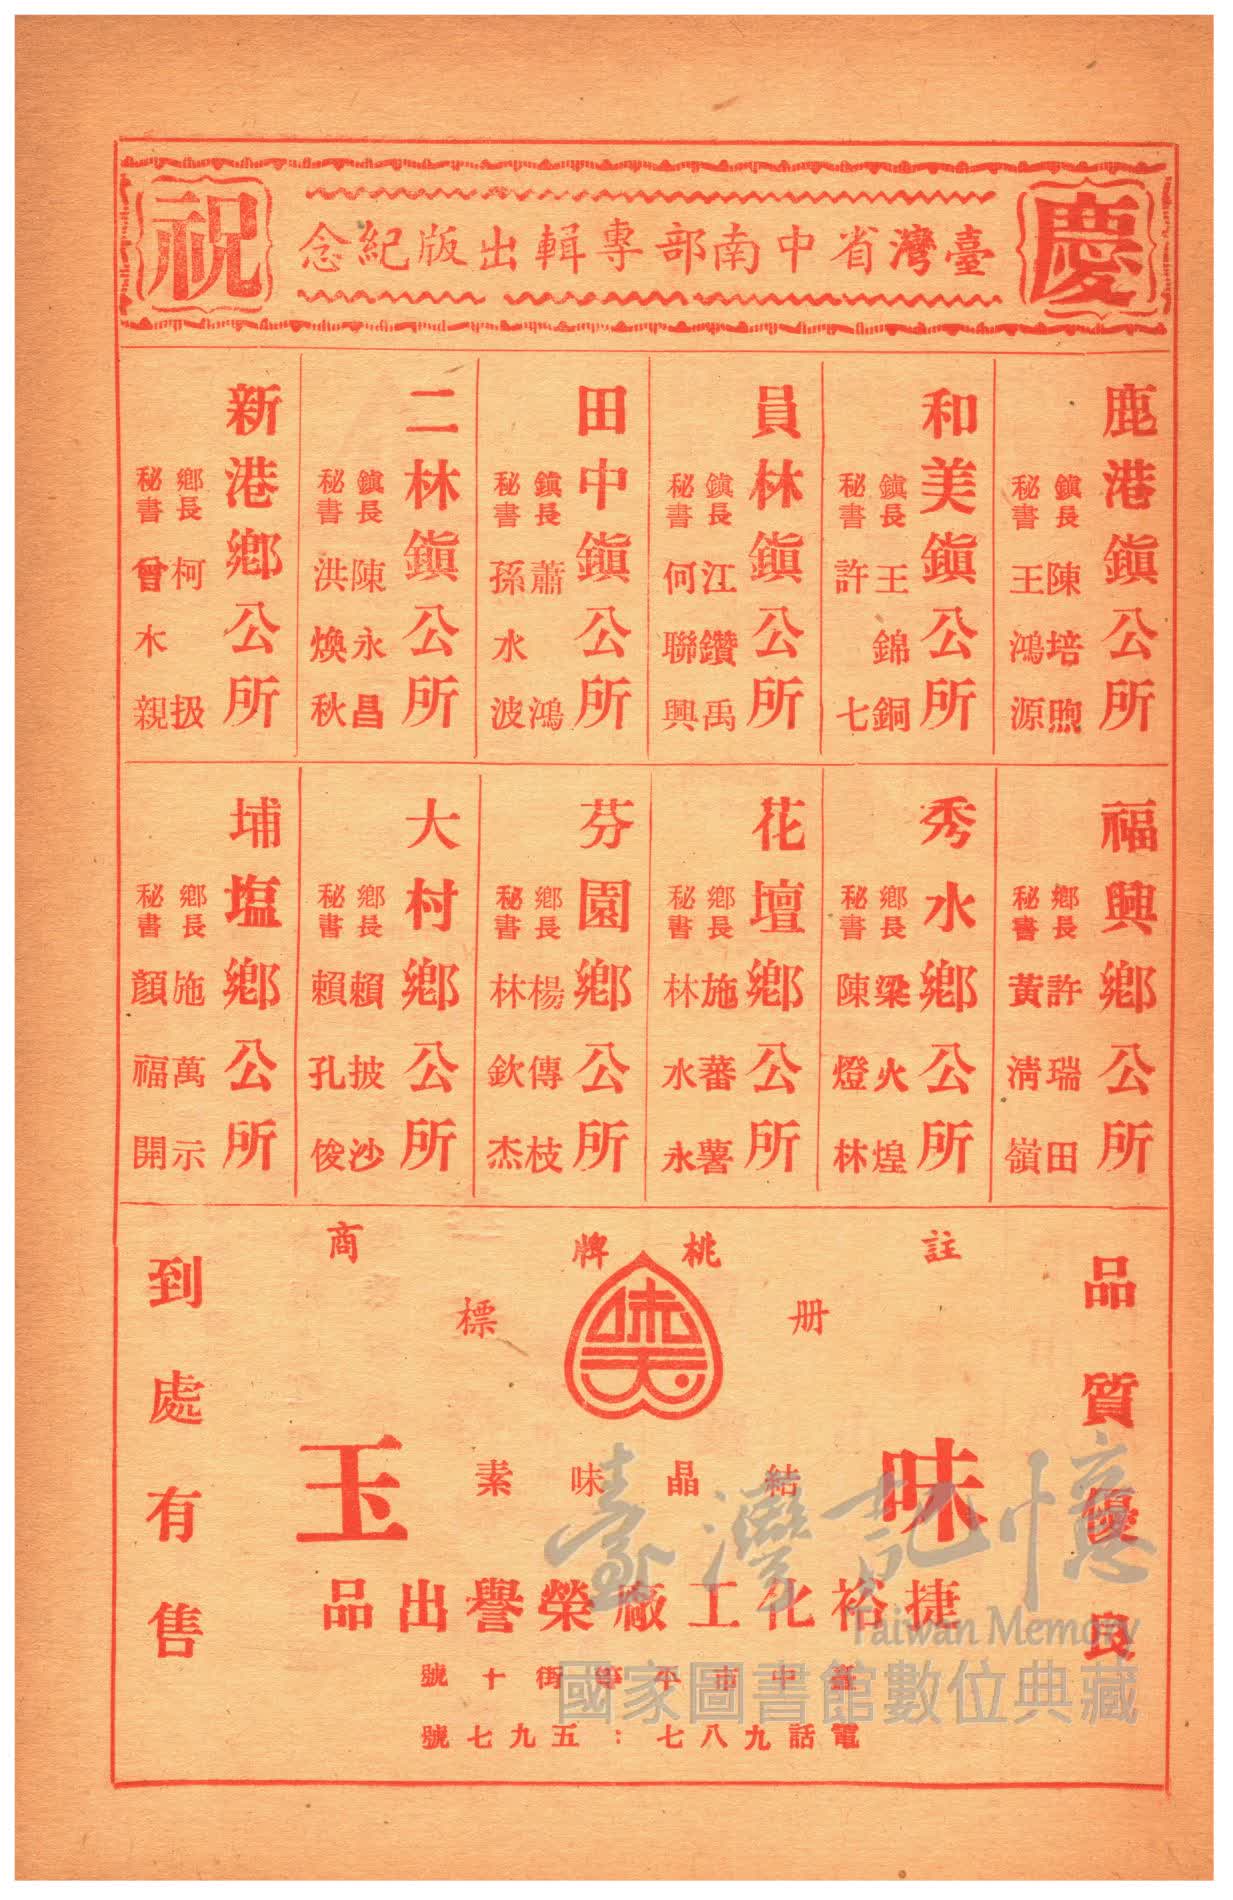 慶祝
臺灣省中南部專輯出版紀念
鹿港鎭公所
鎭長 陳培煦
秘書 王鴻源
和美鎭公所
鎭長 王錦銅
秘書 許七
員林鎭公所
鎭長 江鑽禹
秘書 何聯興
田中鎭公所
鎭長 蕭鴻
秘書 孫水波
二林鎭公所
鎭長 陳永昌
秘書 洪煥秋
新港鄉公所
鄉長 柯扱
秘書 曾木親
福興鄉公所
鄉長 許瑞田
秘書 黃淸嶺
秀水鄉公所
鄉長 梁火煌
秘書 陳燈林
花壇鄉公所
鄉長 施蕃薯
秘書 林水永
芬園鄉公所
鄉長 楊傳枝
秘書 林欽杰
大村鄉公所
鄉長 賴披沙
秘書 賴孔俊
埔塩鄉公所
鄉長 施萬示
秘書 顏福開
品質優良
註册 桃牌 商標
味美
味玉
結晶味素
捷裕化工廠榮譽出品
臺中市平等街十號
電話九八七：五九七號
到處有售
臺灣記憶
Taiwan Memory
國家圖書館數位典藏